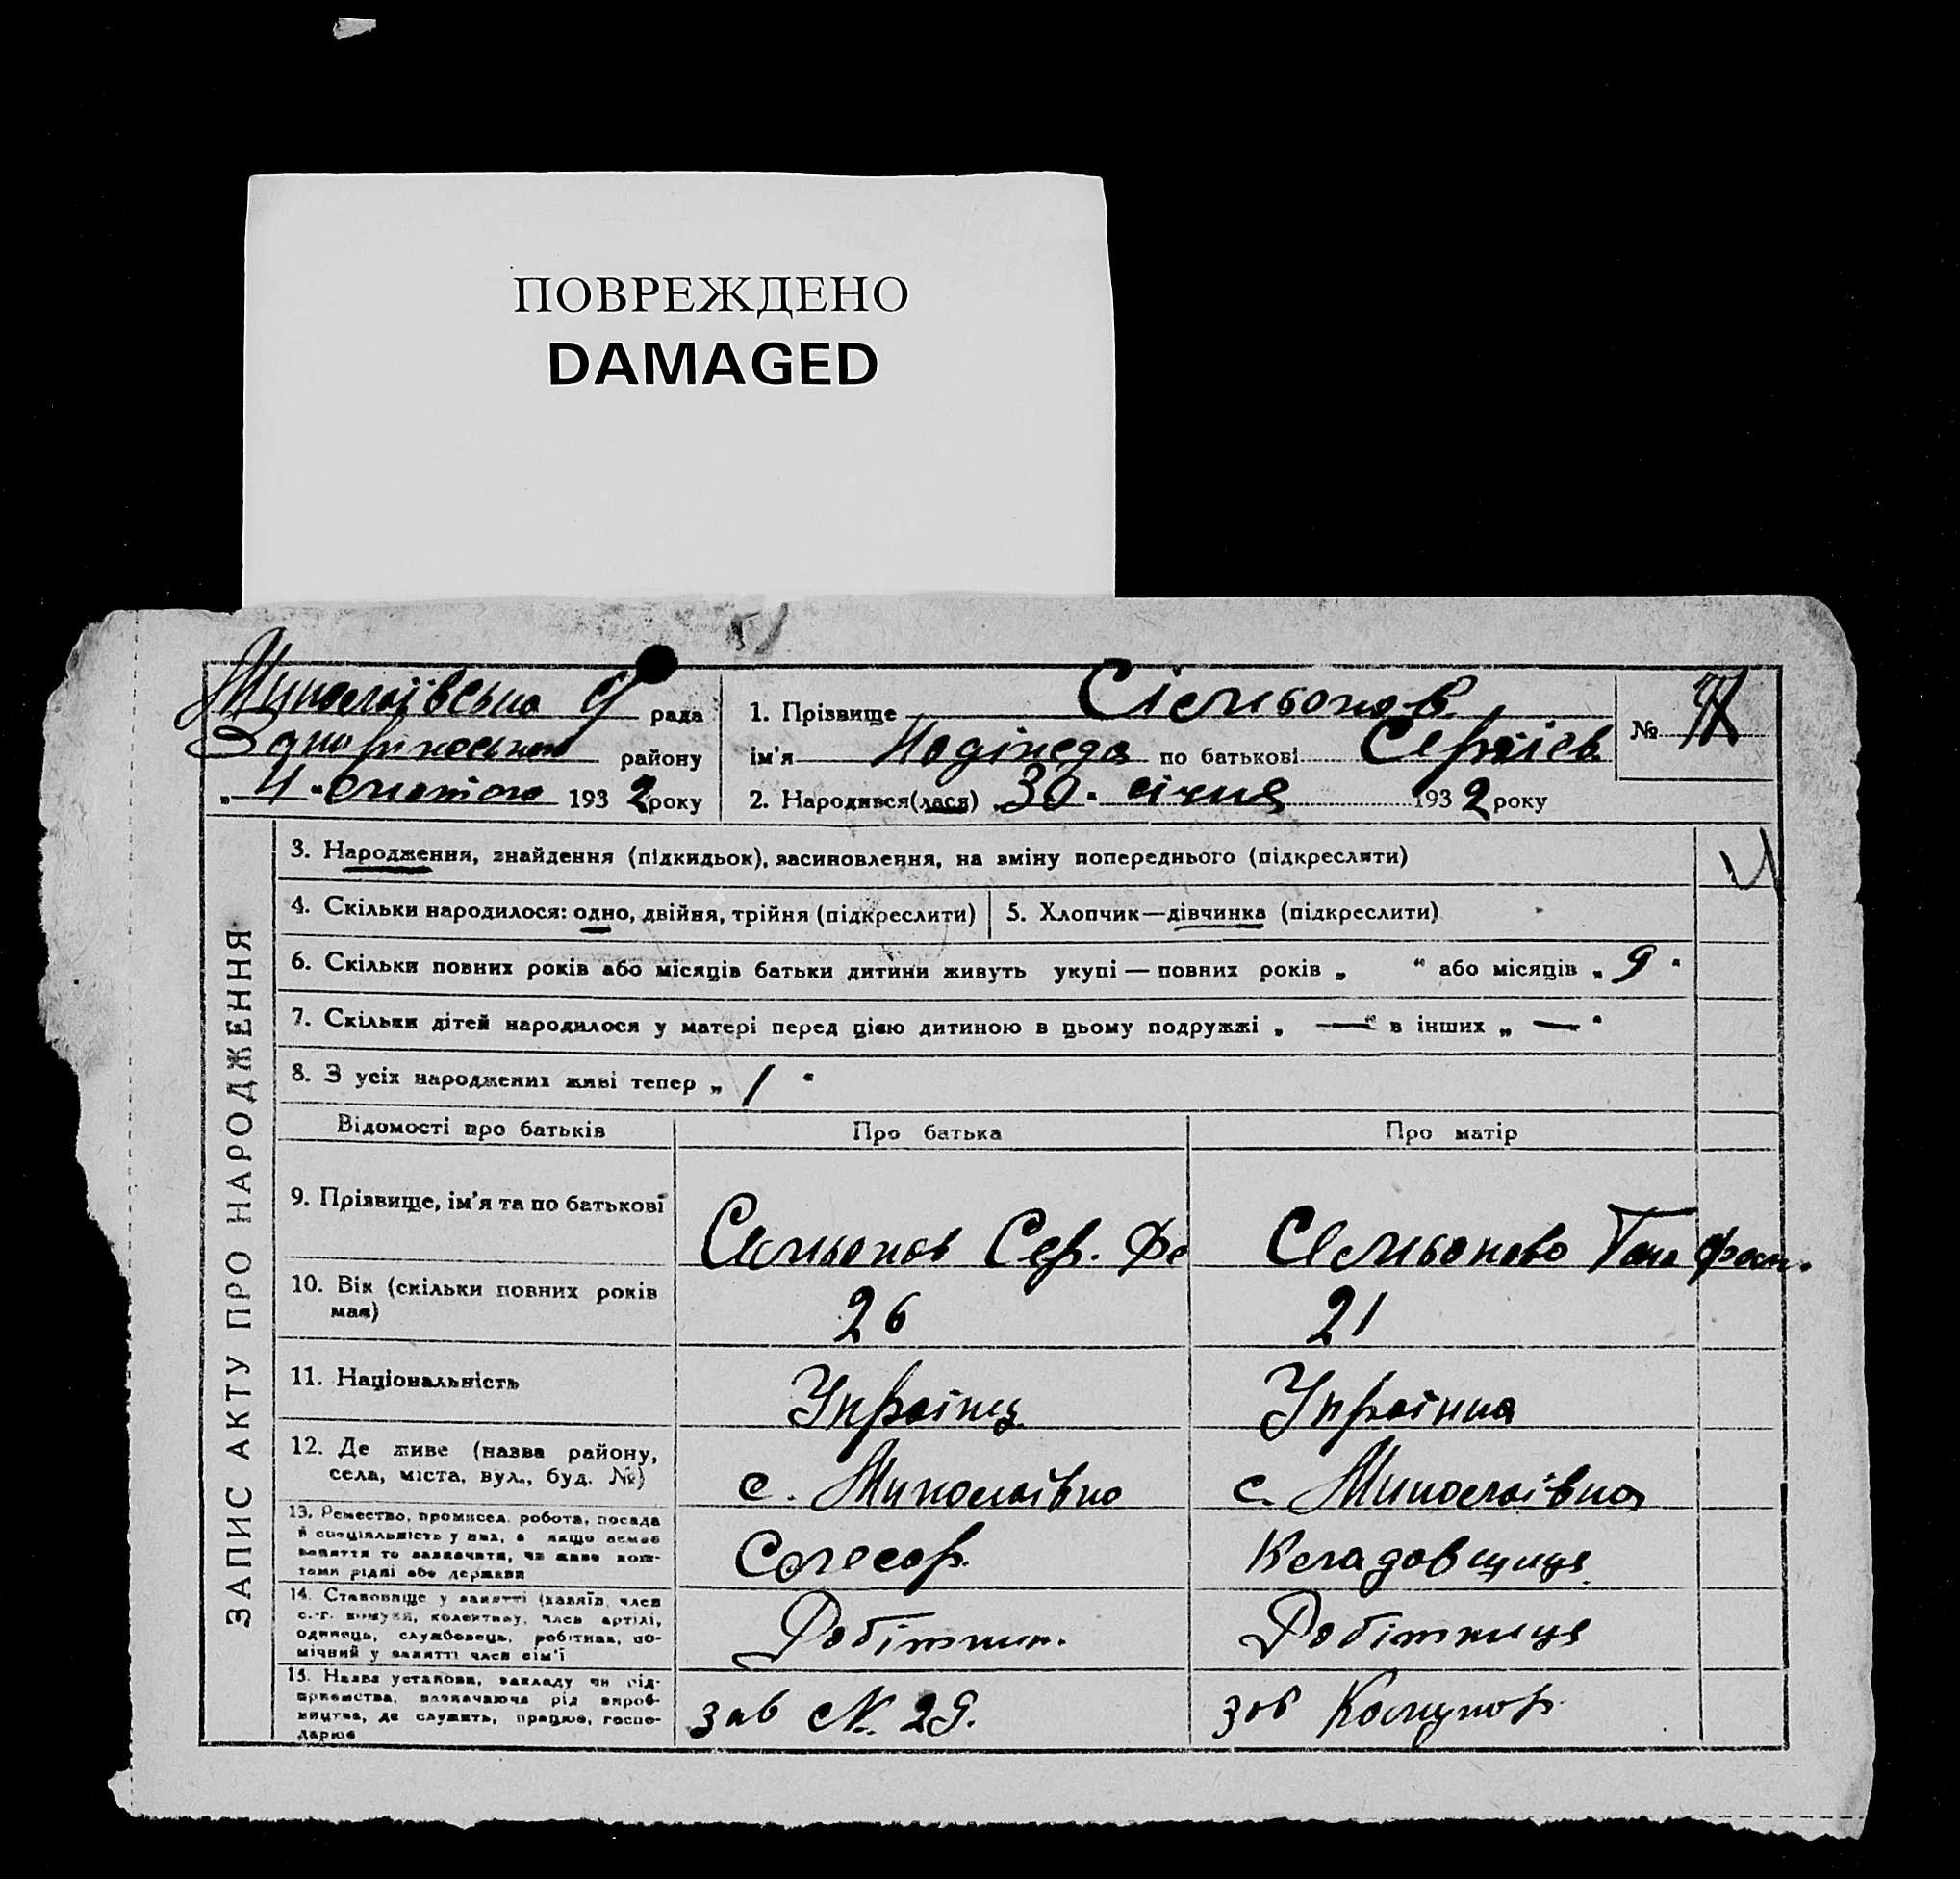 ПОВРЕЖДЕНО
DAMAGED
Миколаївська рада
району
4 лютого 1932 року
1. Прізвище Сємьонов
ім'я Надіжеда по батькові Сергієв
№
2. Народився(лася) 30. січня 1932 року
ЗАПИС АКТУ ПРО НАРОДЖЕННЯ
3. Народження, знайдення (підкидьок), засиновлення, на зміну попереднього (підкреслити)
4. Скільки народилося: одно, двійня, трійня (підкреслити)
5. Хлопчик—дівчинка (підкреслити)
6. Скільки повних років або місяців батьки дитини живуть укупі — повних років „ “ або місяців „ 9 “
7. Скільки дітей народилося у матері перед цією дитиною в цьому подружжі „ — “ в інших „ — “
8. З усіх народжених живі тепер „ 1 “
Відомості про батьків
Про батька
Про матір
9. Прізвище, ім'я та по батькові
Семьонов Сер. Фе
Семьонова
10. Вік (скільки повних років
має)
26
21
11. Національність
Українц
Українка
12. Де живе (назва району,
села, міста, вул., буд. №)
с. Миколаївка
с. Миколаївка
13. Ремество, промисел, робота, посада
й спеціяльність у них, а якщо немає
заняття то зазначити, чи живе кош-
тами рідні або держави
Слесар.
Кладовщиця
14. Становище у занятті (хазяїн, член
с.-г. комуни, колективу, член артілі,
одинець, службовець, робітник, по-
мічний у занятті член сім'ї
Робітник.
Робітниця
15. Назва установи, закладу чи під-
приємства, зазначаючи рід вироб-
ництва, де служить, працює, госпо-
дарює
зав N. 29.
зав Комунар